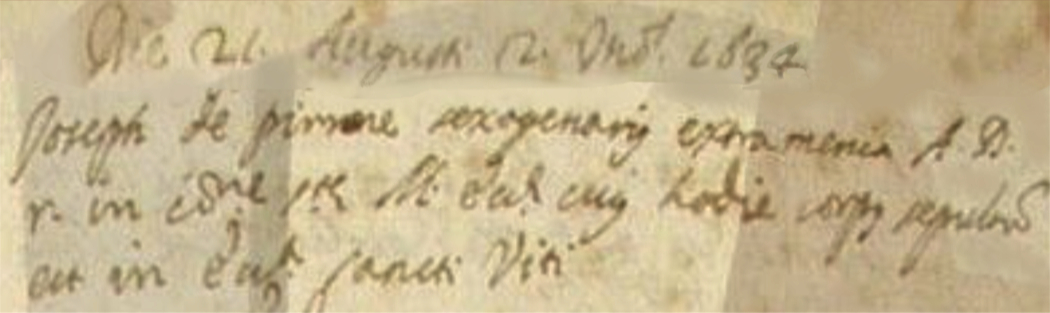 Die 21. Augusti 2. Ind. 1634
Joseph de pirrone sexagenariq extra menia A. D.
r. in cōne s.te M. Eccl. cuiq hodie corpq sepultū
est in Eccl. sancti Viti